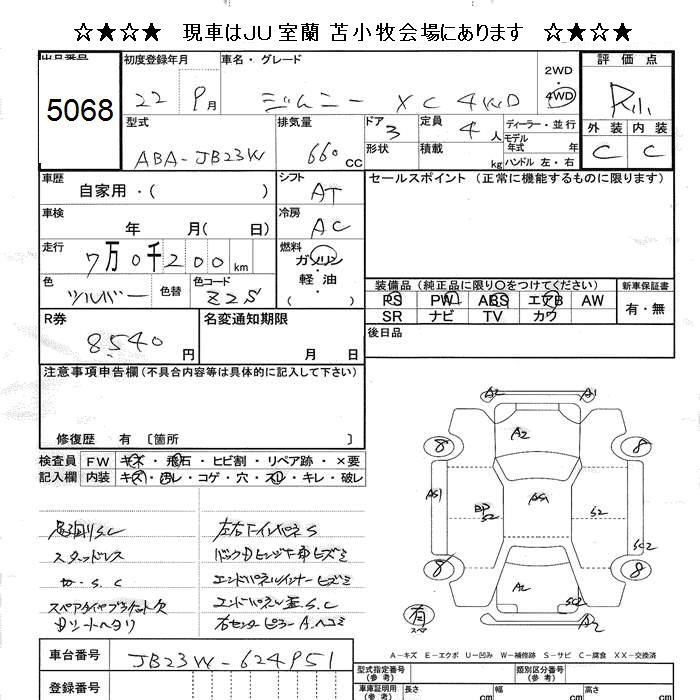 ☆★☆★ 現車はJU室蘭 苫小牧会場にあります ☆★☆★
出品番号 初度登録年月 車名・グレード 2WD 評価点
5068 22 9月 ジムニー XC 4WD 4WD R小
型式 排気量 ドア 定員 ディーラー・並行 外装 内装
ABA-JB23W 660cc 3 4人 モデル年式 年 C C
形状 積載 kg ハンドル 左・右
車歴 シフト セールスポイント (正常に機能するものに限ります)
自家用・( ) AT
車検 冷房
年 月( 日) AC
走行 燃料
7万0千200km ガソリン・軽油
( )
色 色替 色コード 装備品 (純正品に限り○をつけてください) 新車保証書
シルバー Z2S PS PW ABS エアB AW 有・無
R券 名変通知期限 SR ナビ TV カワ
8540円 月 日 後日品
注意事項申告欄(不具合内容等は具体的に記入して下さい)
修復歴 有 〔箇所 〕
検査員 FW キズ・飛石・ヒビ割・リペア跡・×要
記入欄 内装 キズ・汚レ・コゲ・穴・スレ・キレ・破レ
A2 A1
A2
8 8
AS1 A2 S2
S2
SC2
8 8
A2 SC2
有 スペア A2
足廻りS.C 左右Fインパネ S
スタッドレス バックDヒンジ下部ヒズミ
エンドパネルインナーヒズミ
スペアタイヤブラケット欠 エンドパネル歪S.C
Dシートヘタリ 右センターピラーA.ヘコミ
A-キズ E-エクボ U-凹み W-補修跡 S-サビ C-腐食 XX-交換済
車台番号 JB23W-624951 型式指定番号(参考) 類別区分番号(参考)
登録番号 車庫証明用(参考) 長さ cm 幅 cm 高さ cm